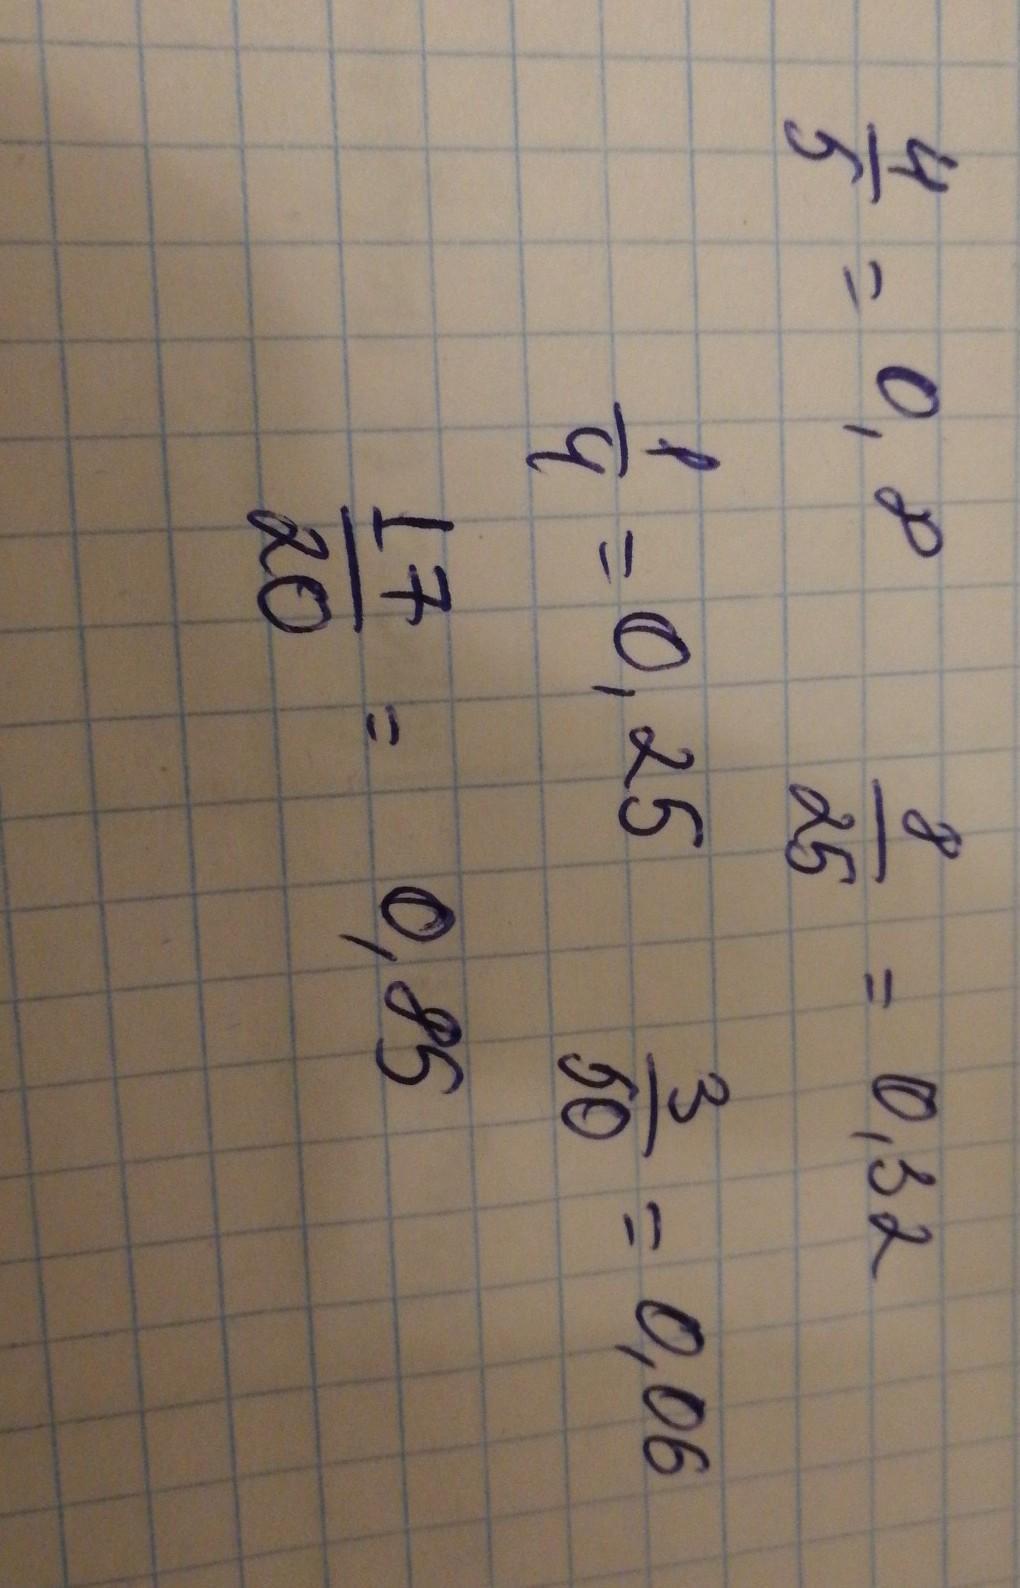 4/5 = 0,8 8/25 = 0,32
1/4 = 0,25 3/50 = 0,06
17/20 = 0,85